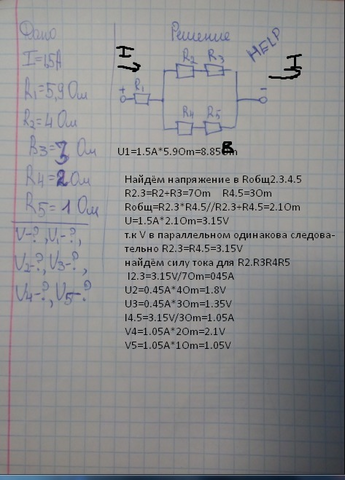 Дано
Решение
HELP
I=1.5А
I
I
R1=5,9 Ом
R2=4 Ом
R3=3 Ом
R4=2 Ом
R5=1 Ом
V-?, V1-?,
V2-?, V3-?,
V4-?, V5-?
R2 R3
+ R1 -
R4 R5
U1=1.5A*5.9Om=8.85В
Найдём напряжение в Rобщ2.3.4.5
R2.3=R2+R3=7Om R4.5=3Om
Rобщ=R2.3*R4.5//R2.3+R4.5=2.1Om
U=1.5A*2.1Om=3.15V
т.к V в параллельном одинакова следова-
тельно R2.3=R4.5=3.15V
найдём силу тока для R2.R3R4R5
I2.3=3.15V/7Om=045A
U2=0.45A*4Om=1.8V
U3=0.45A*3Om=1.35V
I4.5=3.15V/3Om=1.05A
V4=1.05A*2Om=2.1V
V5=1.05A*1Om=1.05V